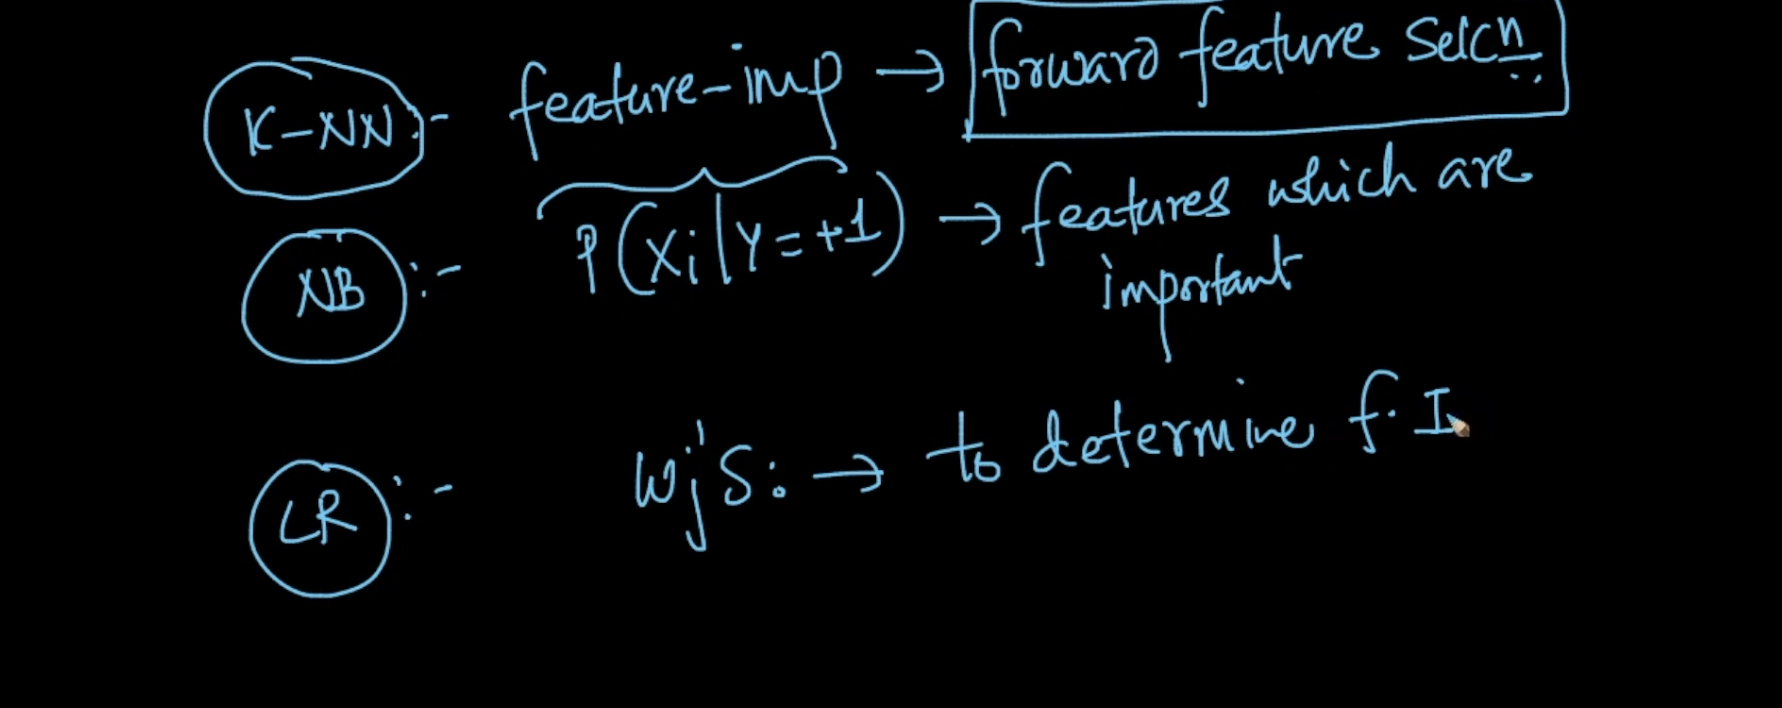 K-NN :- feature-imp → forward feature Selcn
NB :- P(Xi|Y=+1) → features which are
important
LR :- Wj's: → to determine f.I